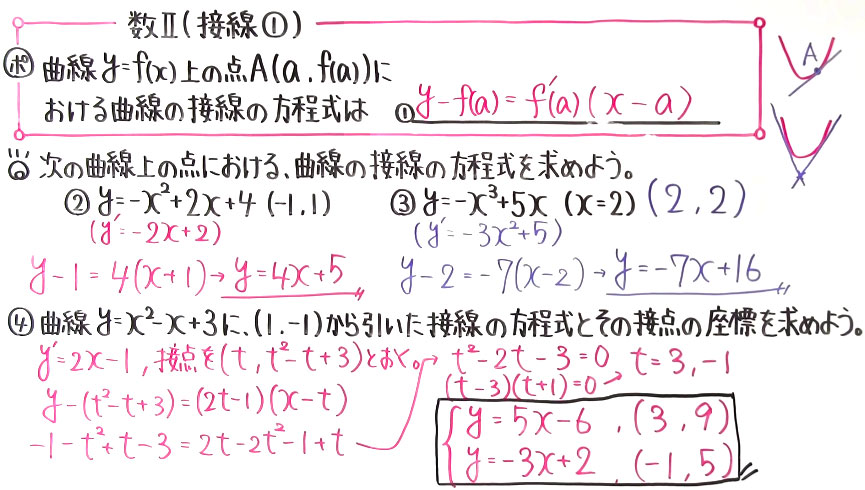 数Ⅱ(接線①)
ポ 曲線 y=f(x)上の点A(a, f(a))に
おける曲線の接線の方程式は ① y-f(a)=f'(a)(x-a)
A
次の曲線上の点における、曲線の接線の方程式を求めよう。
② y=-x²+2x+4 (-1,1) ③ y=-x³+5x (x=2) (2,2)
(y'=-2x+2) (y'=-3x²+5)
y-1=4(x+1)→y=4x+5 y-2=-7(x-2)→y=-7x+16
④ 曲線 y=x²-x+3に、(1,-1)から引いた接線の方程式とその接点の座標を求めよう。
y'=2x-1, 接点を(t, t²-t+3)とおく。→ t²-2t-3=0 t=3,-1
(t-3)(t+1)=0
y-(t²-t+3)=(2t-1)(x-t)
y=5x-6, (3,9)
-1-t²+t-3=2t-2t²-1+t
y=-3x+2, (-1,5)